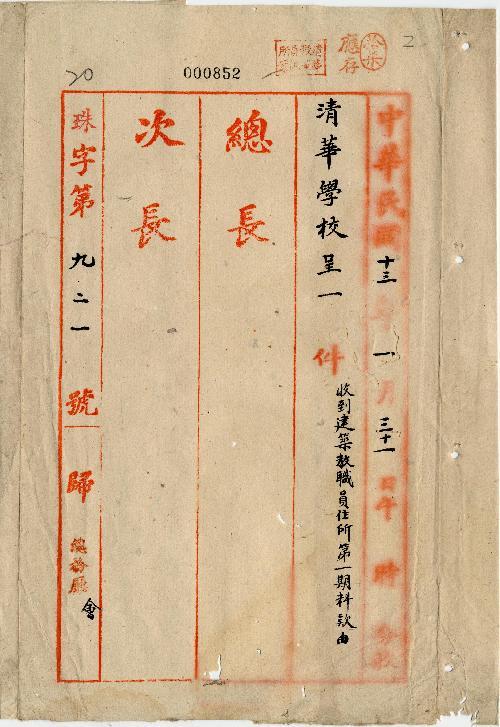 2
應存
20
000852
中華民國十三年一月三十一日午 時
清華學校呈一件
收到建築教職員住所第一期料款由
總長
次長
珠字第九二一號歸總務廳會